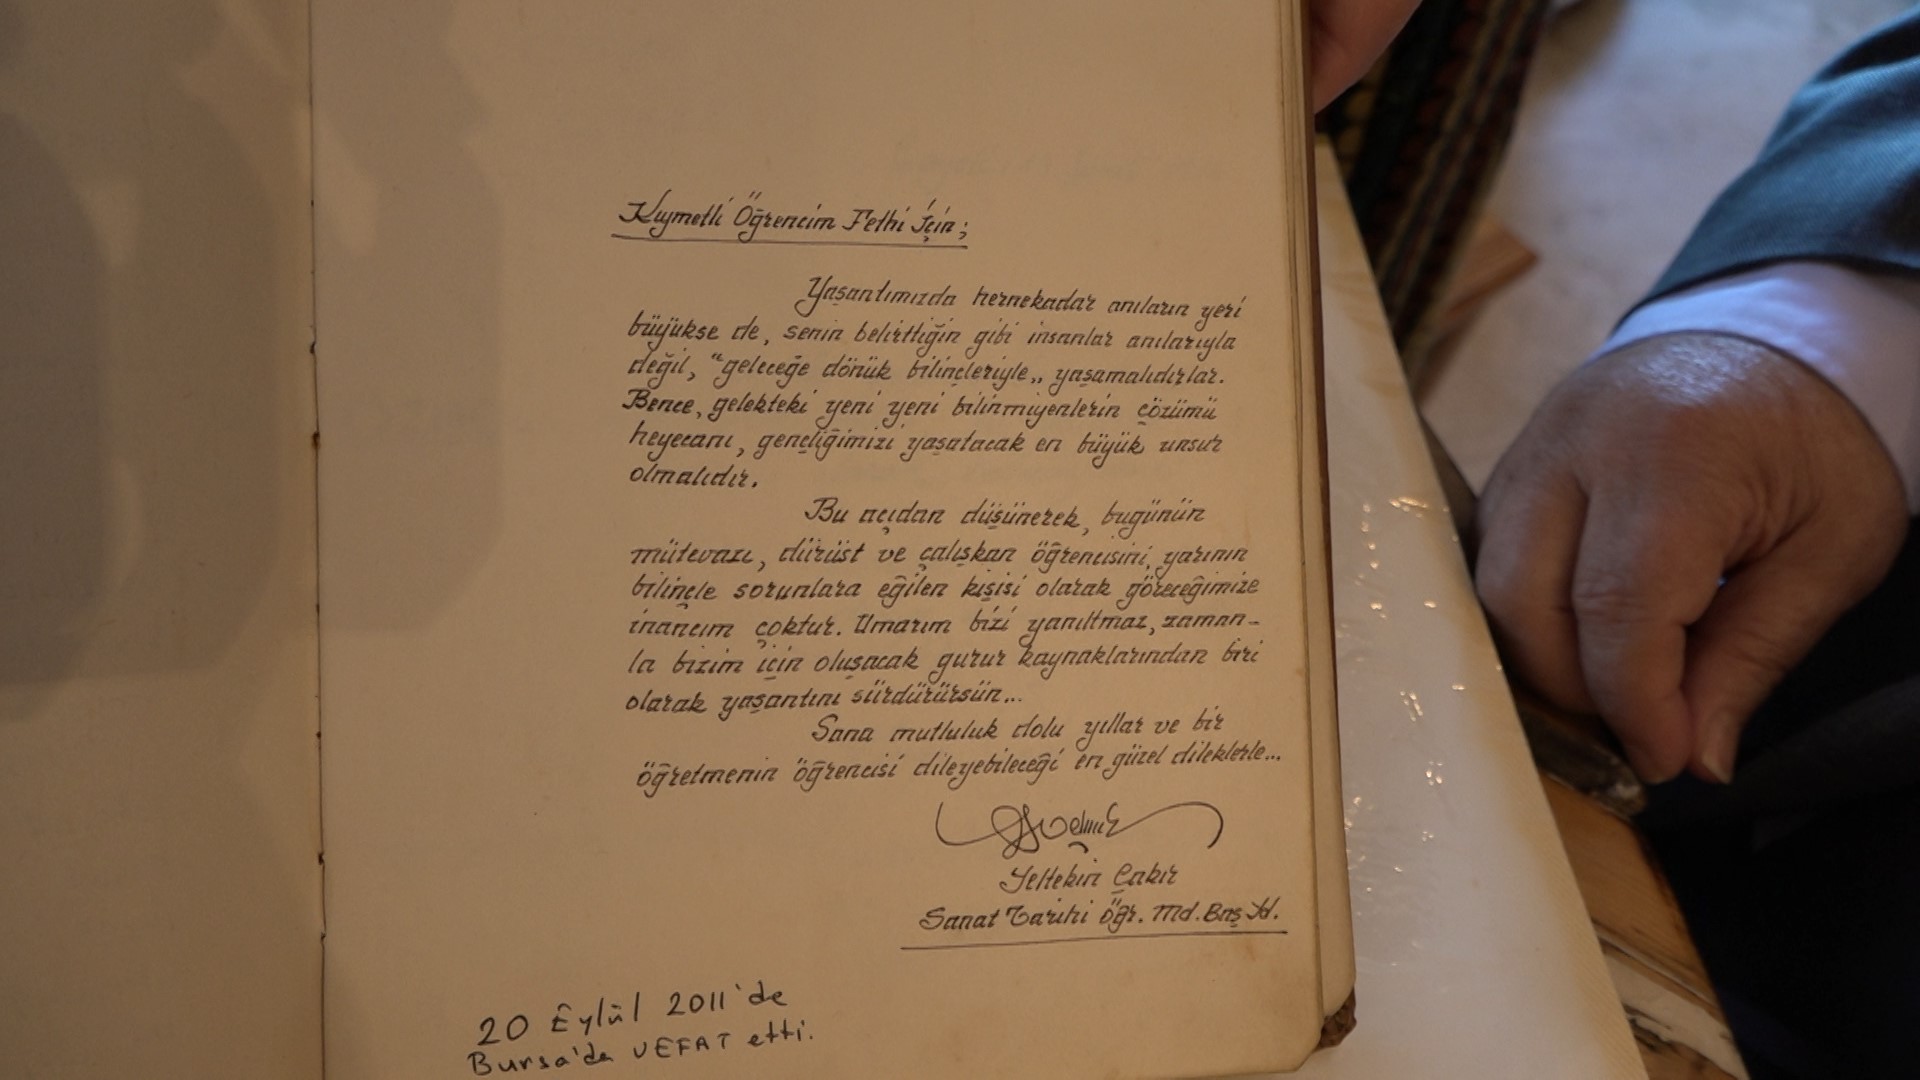 Kıymetli Öğrencim Fethi İçin;
Yaşantımızda hernekadar anıların yeri
büyükse de, senin belirttiğin gibi insanlar anılarıyla
değil, “geleceğe dönük bilinçleriyle„ yaşamalıdırlar.
Bence, gelekteki yeni yeni bilinmiyenlerin çözümü
heyecanı, gençliğimizi yaşatacak en büyük unsur
olmalıdır.
Bu açıdan düşünerek, bugünün
mütevazı, dürüst ve çalışkan öğrencisini, yarının
bilinçle sorunlara eğilen kişisi olarak göreceğimize
inancım çoktur. Umarım bizi yanıltmaz, zaman-
la bizim için oluşacak gurur kaynaklarından biri
olarak yaşantını sürdürürsün...
Sana mutluluk dolu yıllar ve bir
öğretmenin öğrencisi dileyebileceği en güzel dileklerle...
Çakır
Sanat Tarihi Öğr. Md. Baş Yd.
20 Eylül 2011'de
Bursa'da VEFAT etti.